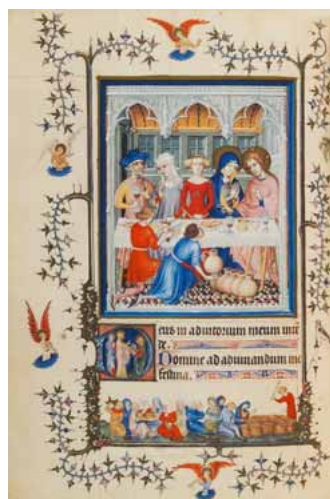 Deus in adiutorium meum inte
de.
Domine ad adiuuandum me
festina.